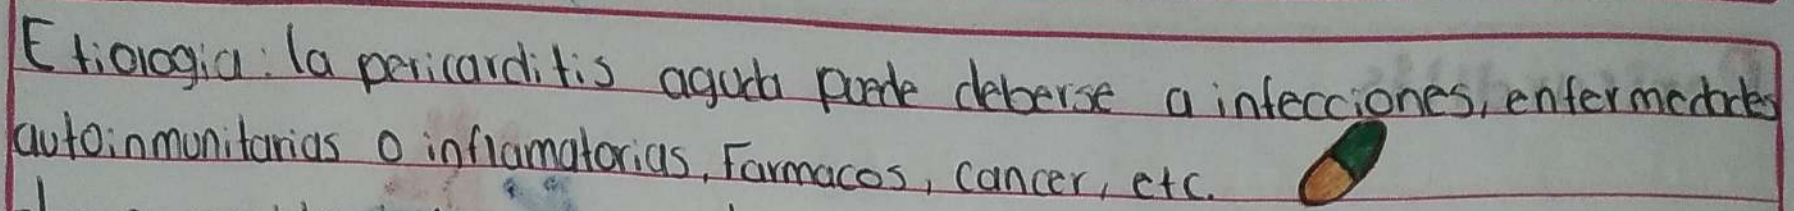 Etiologia: la pericarditis aguda puede deberse a infecciones, enfermedades
autoinmunitarias o inflamatorias, Farmacos, cancer, etc.